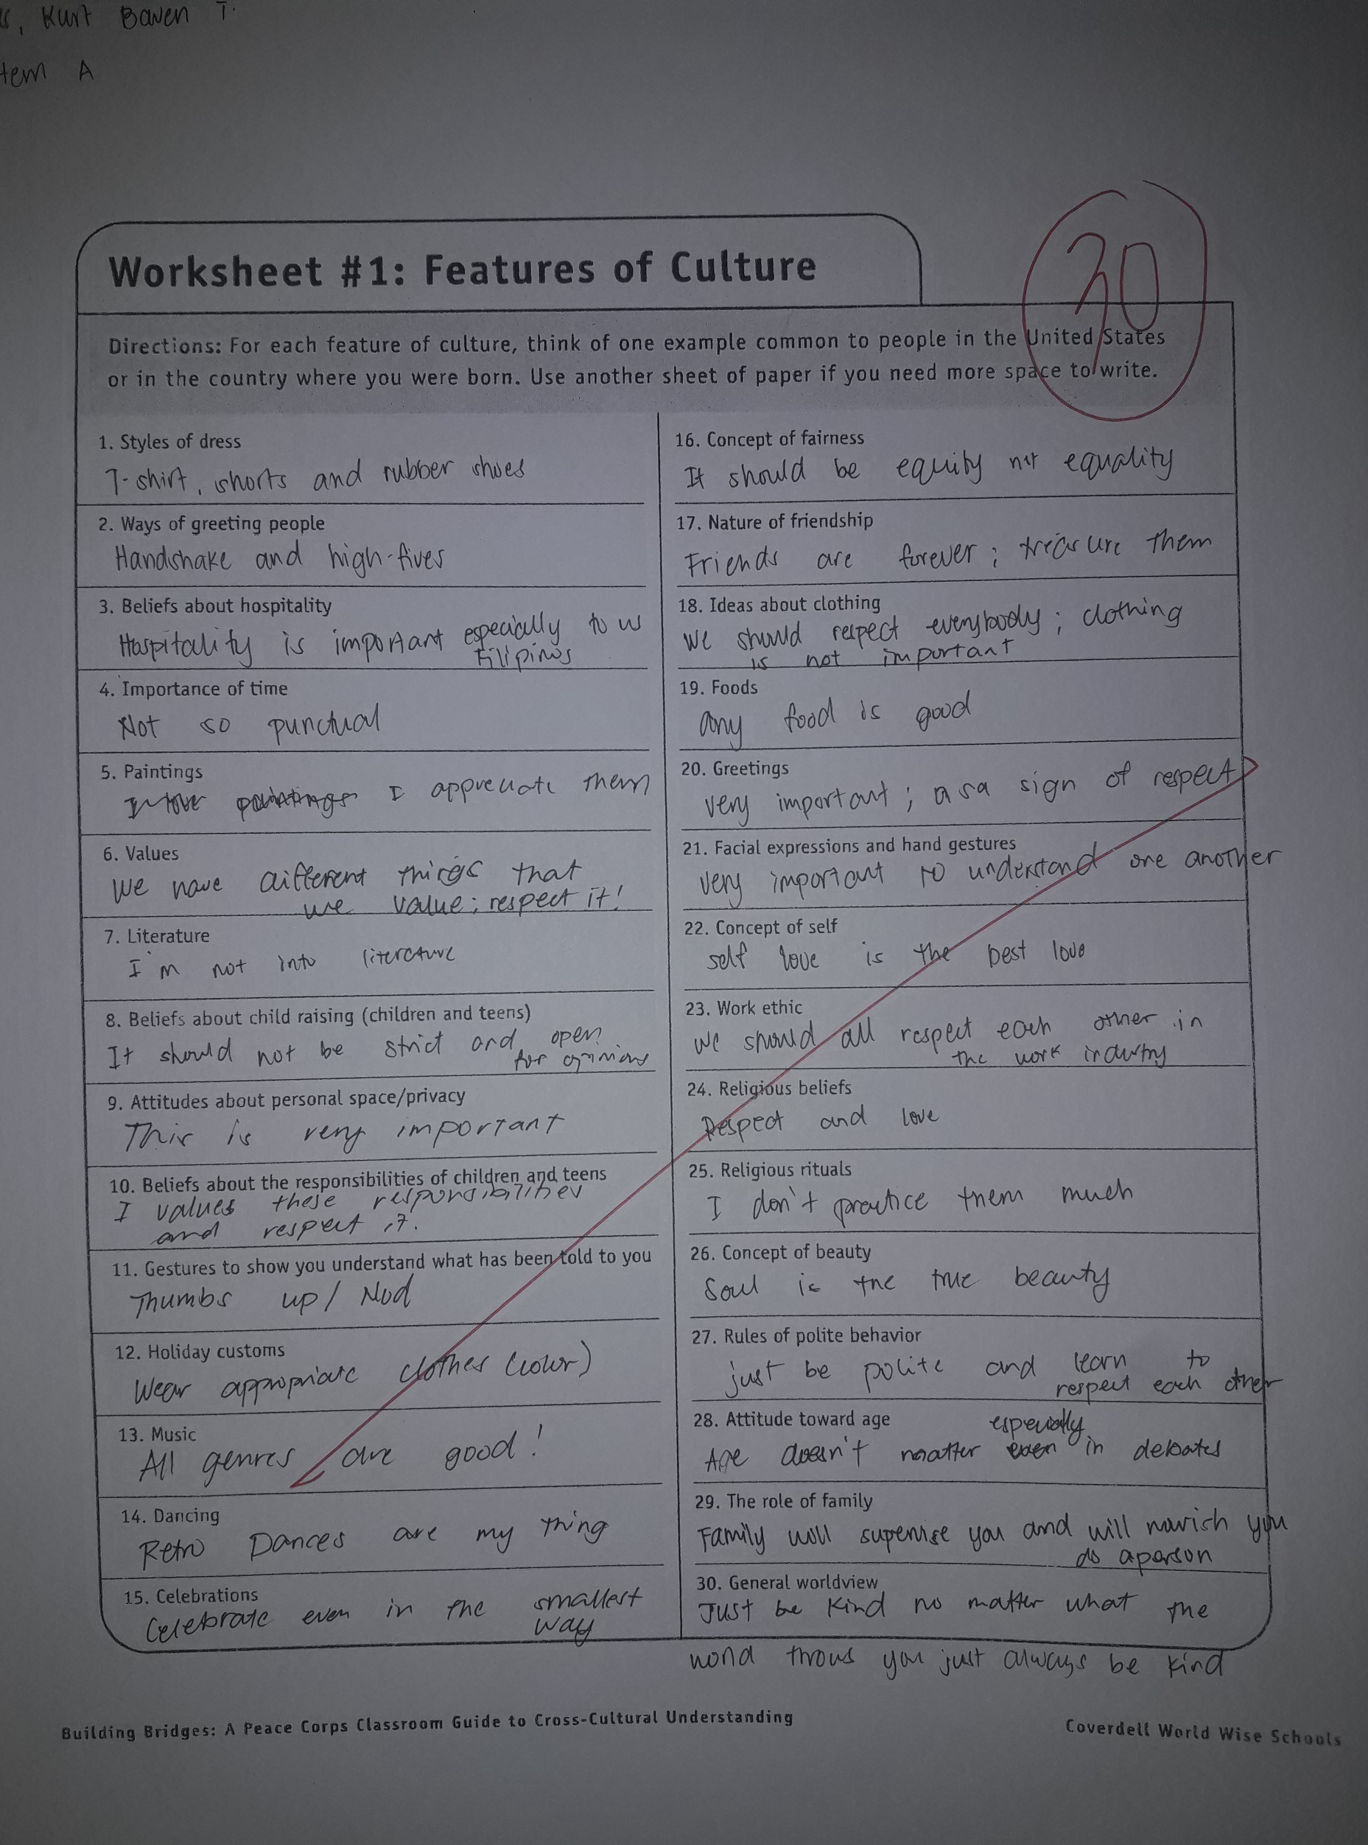 Kurt Baven T.
A
30
Worksheet #1: Features of Culture
Directions: For each feature of culture, think of one example common to people in the United States
or in the country where you were born. Use another sheet of paper if you need more space to write.
1. Styles of dress
T-shirt, shorts and rubber shoes
2. Ways of greeting people
Handshake and high-fives
3. Beliefs about hospitality
Hospitality is important especially to us
Filipinos
4. Importance of time
Not so punctual
5. Paintings
I love paintings I appreciate them
6. Values
We have different things that
we value; respect it!
7. Literature
I'm not into literature
8. Beliefs about child raising (children and teens)
It should not be strict and open
for opinions
9. Attitudes about personal space/privacy
This is very important
10. Beliefs about the responsibilities of children and teens
I values these responsibilities
and respect it.
11. Gestures to show you understand what has been told to you
Thumbs up / Nod
12. Holiday customs
Wear appropriate clothes (color)
13. Music
All genres are good!
14. Dancing
Retro Dances are my thing
15. Celebrations
Celebrate even in the smallest
way
16. Concept of fairness
It should be equity not equality
17. Nature of friendship
Friends are forever; treasure them
18. Ideas about clothing
We should respect everybody; clothing
is not important
19. Foods
Any food is good
20. Greetings
Very important; as a sign of respect
21. Facial expressions and hand gestures
Very important to understand one another
22. Concept of self
self love is the best love
23. Work ethic
We should all respect each other in
the work industry
24. Religious beliefs
Respect and love
25. Religious rituals
I don't practice them much
26. Concept of beauty
Soul is the true beauty
27. Rules of polite behavior
just be polite and learn to
respect each other
28. Attitude toward age
especially
Age doesn't matter even in debates
29. The role of family
Family will supervise you and will nourish you
as a person
30. General worldview
Just be kind no matter what the
world throws you just always be kind
Building Bridges: A Peace Corps Classroom Guide to Cross-Cultural Understanding
Coverdell World Wise Schools